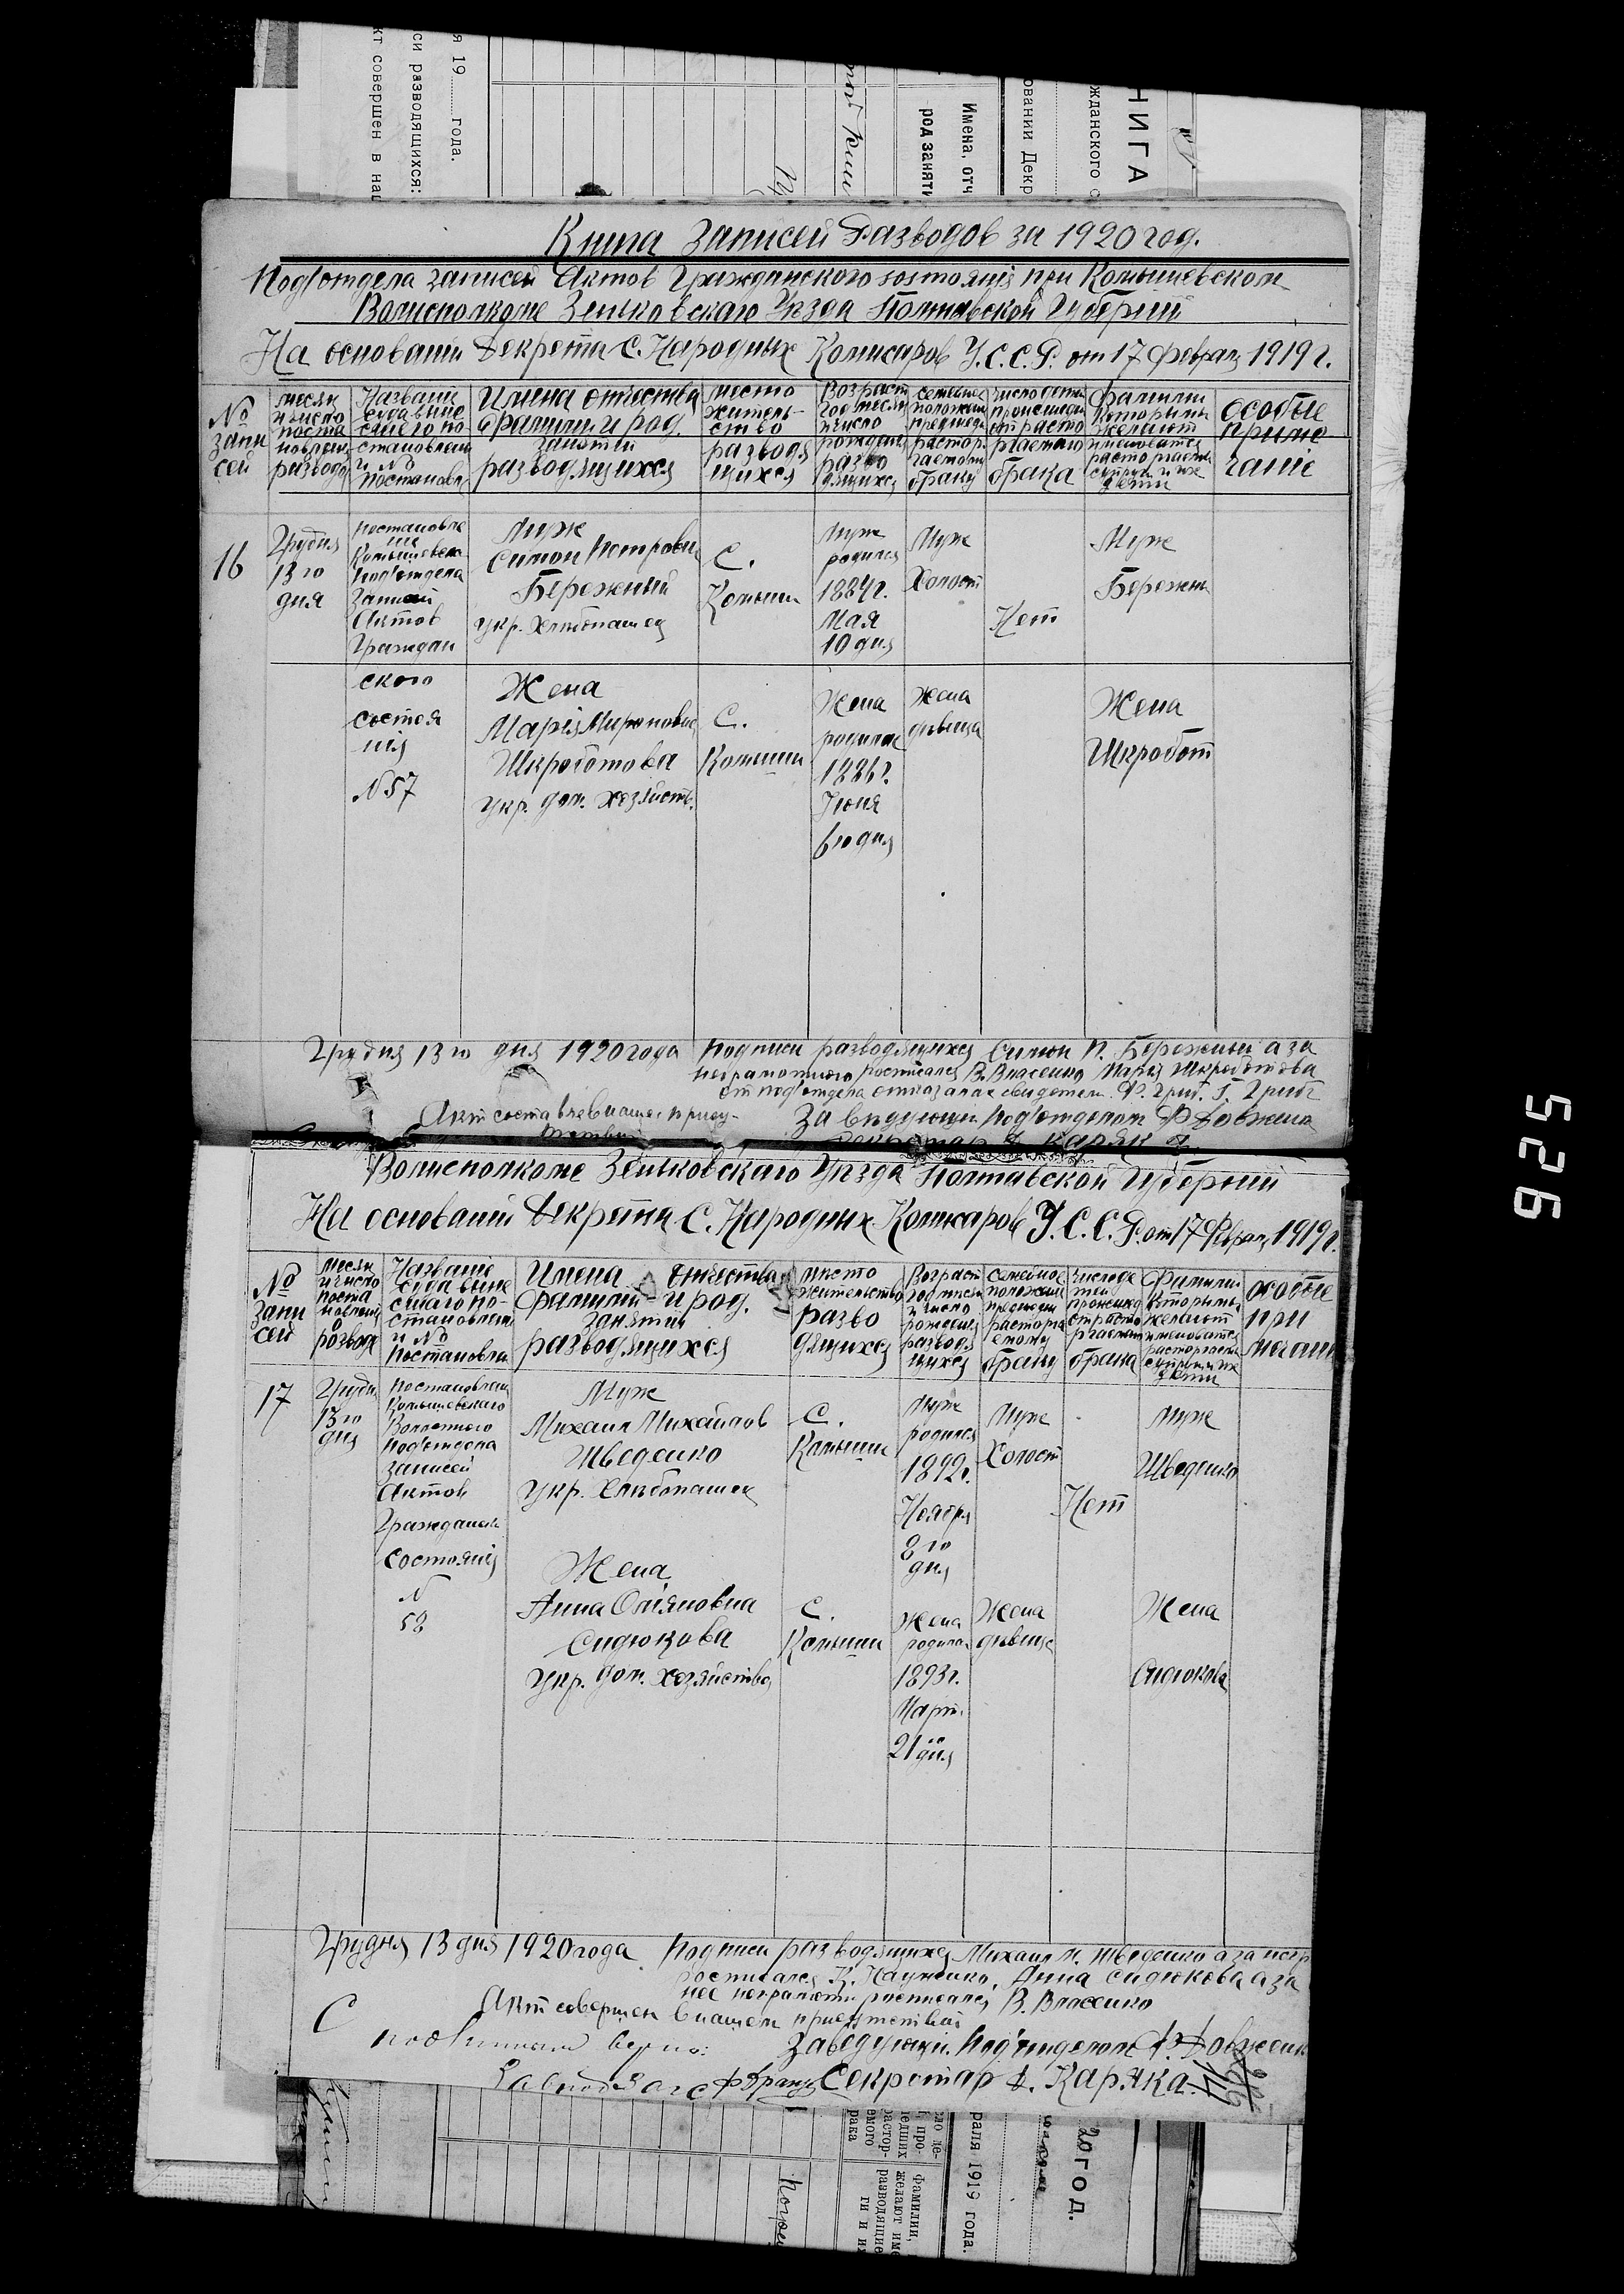 я 19 года.
си разводящихся:
кт совершен в наш
Имена, отч
род заняти
овании Декр
жданского с
НИГА
Книга Записей Разводов за 1920 год.
Под'отдела Записей Актов Гражданского состоянія при Комышевском
Волисполкоме Зеньковскаго Уезда Полтавской Губерніи
На основаніи Декрета С. Народных Комисаров У.С.С.Р. от 17 Февраля 1919 г.
№ записей
Месяц и число постановленія развода
Названіе суда вынесшаго постановленія и № постановле
Имена отчества фамиліи и род занятій разводящихся
Место жительство разводящихся
Возраст год месяц и число рожденія разводящихся
семейное положение предшедш растор гаемому браку
число детей происшедш от расто ргаемаго брака
Фамилии которыми желают именоватся расторгаемы супруги и их дети
особые примечаніе
16
Грудня
13 го
дня
Постановле
ніе
Комышевска
Под'отдела
Записей
Актов
Граждан
ского
состоя
нія
N 57
Муж
Симон Петрович
Бережный
укр. Хлебопашец
С.
Комыши
Муж
родился
1884 г.
Мая
10 дня
Муж
Холост
Нет
Муж
Бережн
Жена
Марія Мироновна
Шкроботова
укр. дом. хозяйств.
С.
Комыши
Жена
родилас
1886 г.
Іюня
6 го дня
Жена
девица
Жена
Шкробот
Грудня 13 го дня 1920 года Подписи разводящихся Симон П. Бережный а за
неграмотного росписался В. Власенко Марія Шкроботова
от под'отдела отказалас свидетели
Акт составлен в нашем присут-
ствіи
Заведующий Под'отделом Ф Довжен
Секретар Д. Каряка
Волисполкоме Зеньковскаго Уезда Полтавской Губерніи
На основаніи Декрета С. Народных Комисаров У.С.С.Р. от 17 Февраля 1919 г.
№ записей
Месяц и число постановленія о розводе
Названіе суда выне сшаго по- становленія и № Постановле
Имена Отчества Фамиліи и род. Занятій разводящихся
Место жительство разводящихся
Возраст год месяц и число рожденія разводя щихся
семейное положение предшедш расторга емому браку
число де тей происшед от расто ргаемаго брака
Фамилии которыми желают именоватся расторгаемы супруги и их дети
особые при мечаніе
17
Грудня
13 го
дня
Постановленія
Комышевскаго
Волостного
Под'отдела
записей
Актов
Гражданск
состоянія
N
58
Муж
Михаил Михайлов
Шведенко
Укр. Хлебопашец
С.
Комыши
Муж
родился
1892 г.
Ноября
8 го
дня
Муж
Холост
Нет
Муж
Шведенко
Жена
Анна
Сидюкова
Укр. дом. хозяйство
С.
Комыши
Жена
родилас
1893 г.
Март.
21 дня
Жена
девица
Жена
Сидюкова
Грудня 13 дня 1920 года Подписи разводящихся Михаил М. Шведенко а за негр
росписался К. Науменко, Анна Сидюкова а за
нее неграмотн росписался В. Власенко
Акт совершен в нашем присутствіи
С подлинным верно:
Заведующій Под'отделом Ф. Довженко
Секретар Д. Каряка.
926
ло де-
про-
едших
растор-
емого
рака
Фамилии,
желают име
разводящие
ги и их
раля 1919 года.
20 ГОД.